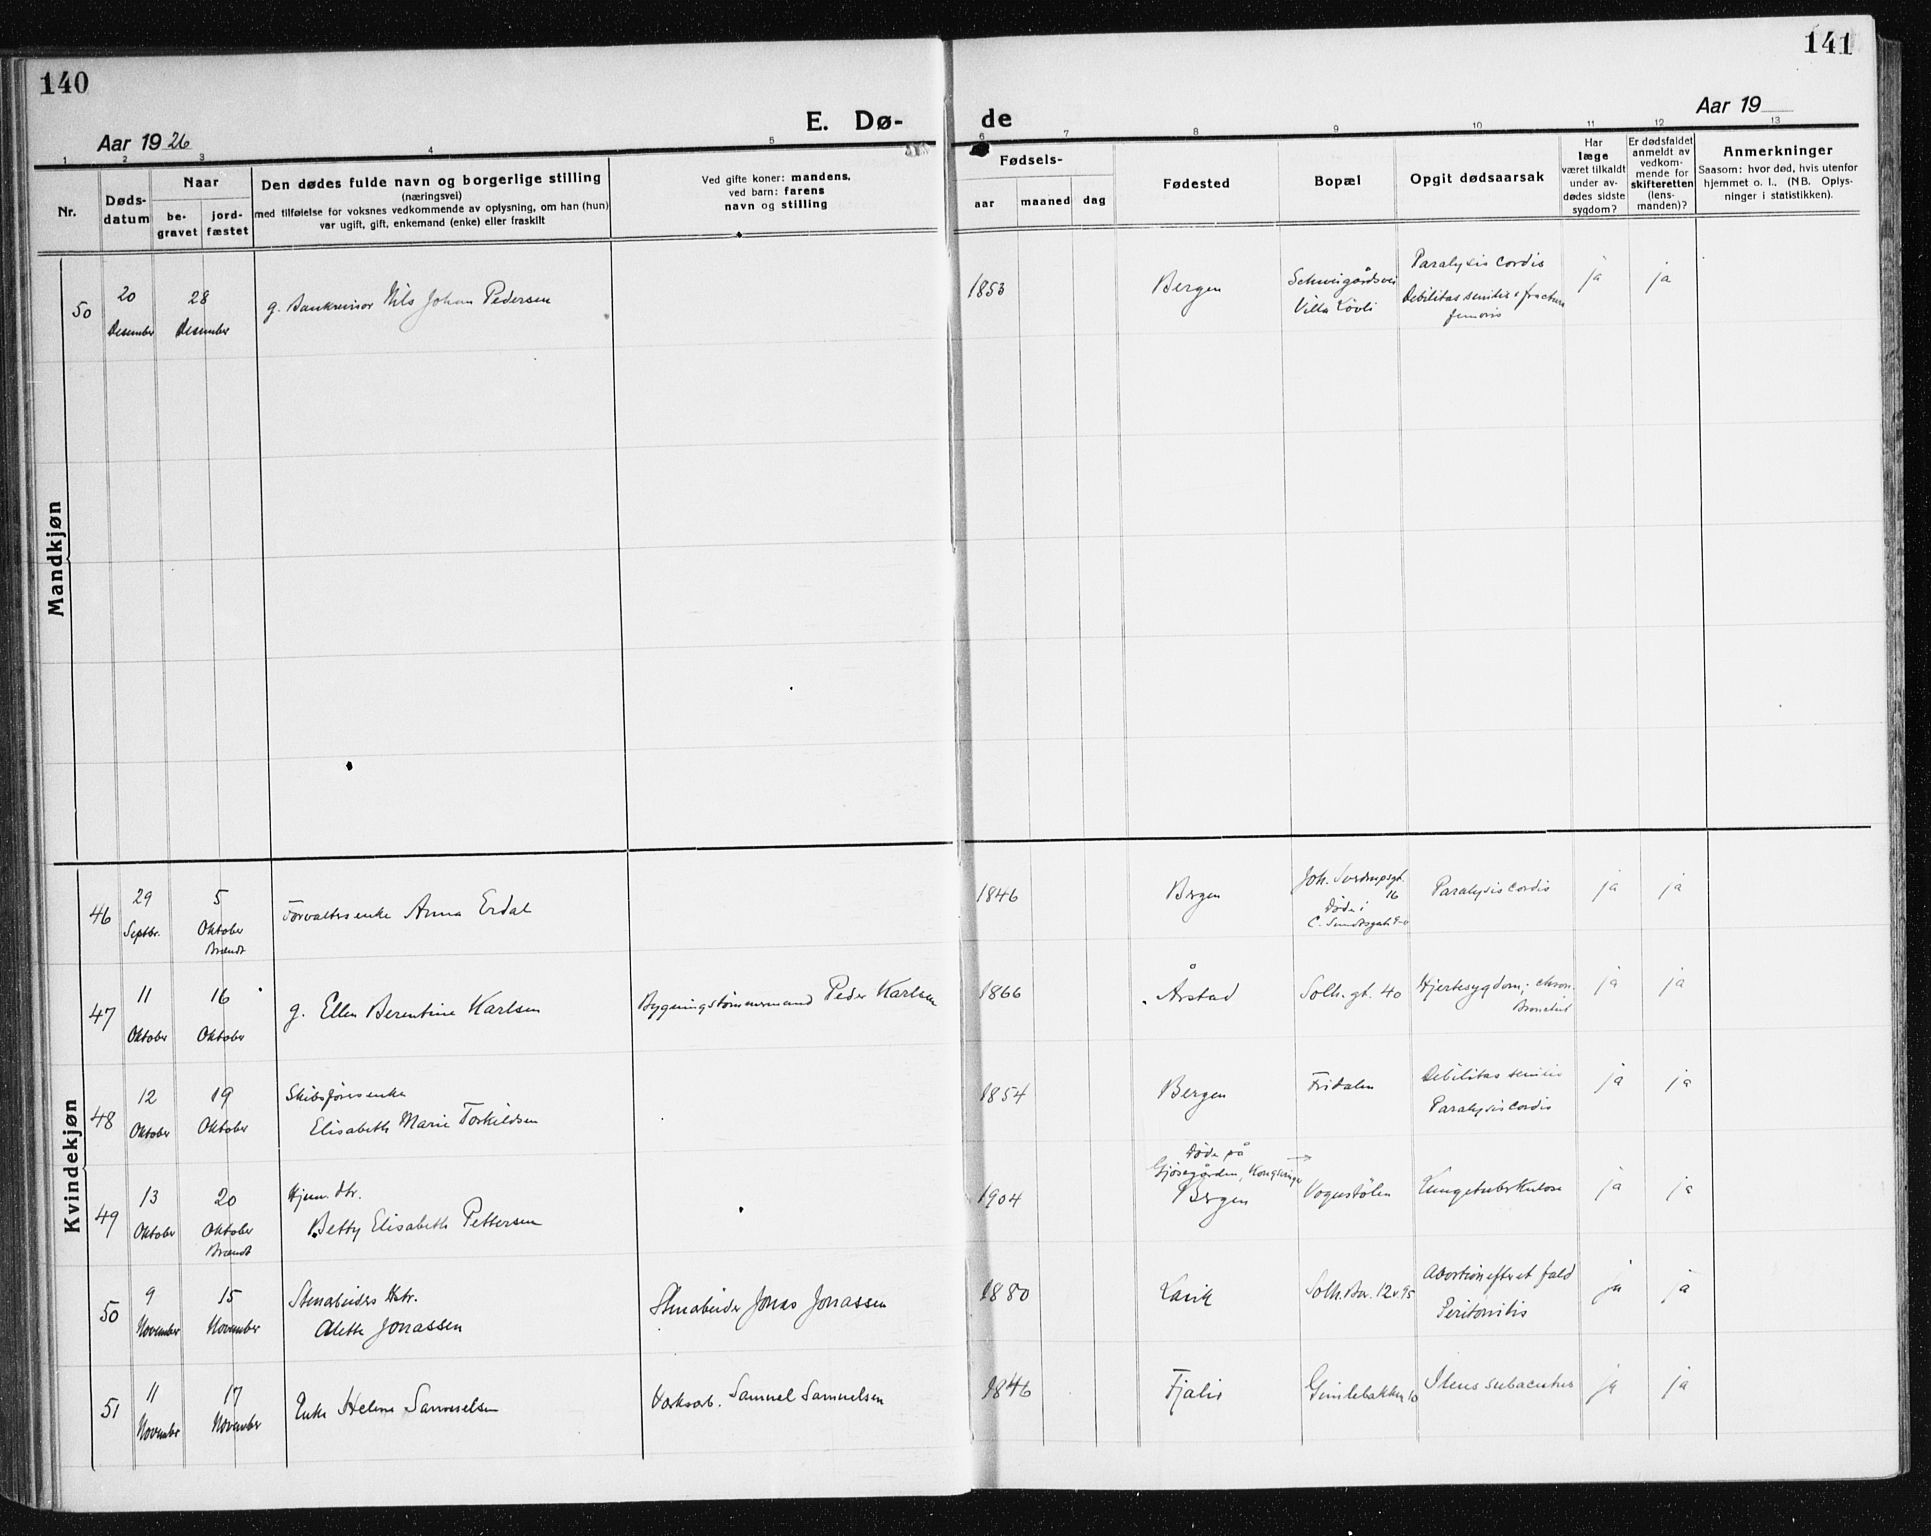 140
141
Aar 1926
E. Dø-
de
Aar 19
1 2 3 4 5 6 7 8 9 10 11 12 13
Nr.
Døds-
datum
Naar
be-
gravet
jord-
fæstet
Den dødes fulde navn og borgerlige stilling
(næringsvei)
med tilføielse for voksnes vedkommende av oplysning, om han (hun)
var ugift, gift, enkemand (enke) eller fraskilt
Ved gifte koner: mandens,
ved barn: farens
navn og stilling
Fødsels-
aar
maaned
dag
Fødested
Bopæl
Opgit dødsaarsak
Har
læge
været tilkaldt
under av-
dødes sidste
sygdom?
Er dødsfaldet
anmeldt av
vedkom-
mende for
skifteretten
(lens-
manden)?
Anmerkninger
Saasom: hvor død, hvis utenfor
hjemmet o. l., (NB. Oplys-
ninger i statistikken).
Mandkjøn
50
20
Desember
28
Desember
g. Bankrevisor Nils Johan Pedersen
1853
Bergen
Schweigårdsvei
Villa Løvli
Paralysis cordis
Debilitas senilis + fractura
femoris
ja
ja
Kvindekjøn
46
29
Septbr.
5
Oktober
Brændt
Forvaltersenke Anna Erdal
1846
Bergen
Joh. Sverdrupsgt.
16
Døde i
C. Sundtsgate
Paralysis cordis
ja
ja
47
11
Oktober
16
Oktober
g. Ellen Berentine Karlsen
Bygningstømmermand Peder Karlsen
1866
Årstad
Solh.gt. 40
Hjertesygdom, chron.
Bronchit
ja
ja
48
12
Oktober
19
Oktober
Skibsførersenke
Elisabeth Marie Torkildsen
1854
Bergen
Fridalen
Debilitas senilis
Paralysis cordis
ja
ja
49
13
Oktober
20
Oktober
Brændt
Hjem. dtr.
Betty Elisabeth Pettersen
1904
Døde på
Gjøsegården, Kongsvinger
Bergen
Vognstølen
Lungetuberkulose
ja
ja
50
9
November
15
November
Stenarbeiders Hstr.
Alette Jonassen
Stenarbeider Jonas Jonassen
1880
Lavik
Solh.
Abortion efter et fald
Peritonitis
ja
ja
51
11
November
17
November
Enke Helene Samuelsen
Verksarb. Samuel Samuelsen
1846
Fjaler
Gimlebakken 10
Ileus subacutus
ja
ja